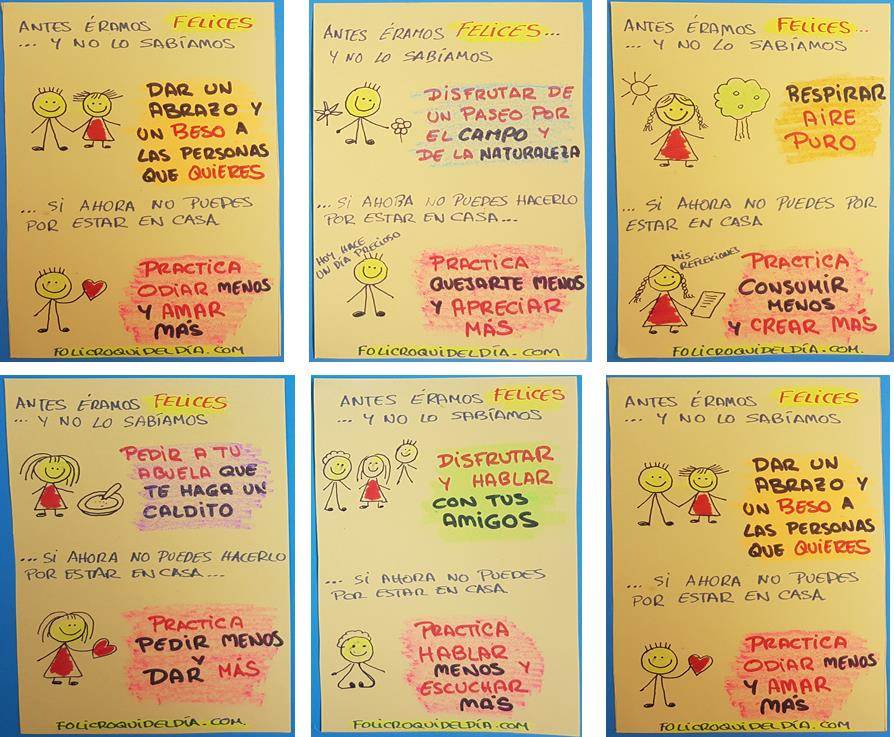 ANTES ÉRAMOS FELICES
... Y NO LO SABÍAMOS
DAR UN
ABRAZO Y
UN BESO A
LAS PERSONAS
QUE QUIERES
... SI AHORA NO PUEDES
POR ESTAR EN CASA
PRACTICA
ODIAR MENOS
Y AMAR
MÁS
FOLICROQUIDELDÍA.COM
ANTES ÉRAMOS FELICES...
Y NO LO SABÍAMOS
DISFRUTAR DE
UN PASEO POR
EL CAMPO Y
DE LA NATURALEZA
... SI AHORA NO PUEDES HACERLO
POR ESTAR EN CASA...
HOY HACE
UN DÍA PRECIOSO
PRACTICA
QUEJARTE MENOS
Y APRECIAR
MÁS
FOLICROQUIDELDÍA.COM
ANTES ÉRAMOS FELICES...
... Y NO LO SABÍAMOS
RESPIRAR
AIRE
PURO
... SI AHORA NO PUEDES POR
ESTAR EN CASA
MIS
REFLEXIONES
PRACTICA
CONSUMIR
MENOS
Y CREAR MÁS
FOLICROQUIDELDÍA.COM.
ANTES ÉRAMOS FELICES
... Y NO LO SABÍAMOS
PEDIR A TU
ABUELA QUE
TE HAGA UN
CALDITO
... SI AHORA NO PUEDES HACERLO
POR ESTAR EN CASA...
PRACTICA
PEDIR MENOS
Y
DAR MÁS
FOLICROQUIDELDÍA.COM.
ANTES ÉRAMOS FELICES
... Y NO LO SABÍAMOS
DISFRUTAR
Y HABLAR
CON TUS
AMIGOS
... SI AHORA NO PUEDES
POR ESTAR EN CASA
PRACTICA
HABLAR
MENOS Y
ESCUCHAR
MÁS
FOLICROQUIDELDÍA.COM
ANTES ÉRAMOS FELICES
... Y NO LO SABÍAMOS
DAR UN
ABRAZO Y
UN BESO A
LAS PERSONAS
QUE QUIERES
... SI AHORA NO PUEDES
POR ESTAR EN CASA
PRACTICA
ODIAR MENOS
Y AMAR
MÁS
FOLICROQUIDELDÍA.COM